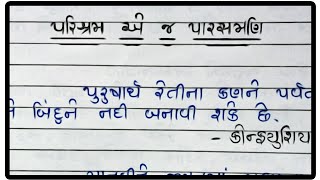 પરિશ્રમ એ જ પારસમણિ
પુરુષાર્થ રેતીના કણને પર્વત
બિંદુને નદી બનાવી શકે છે.
- કોન્ફ્યુશિય